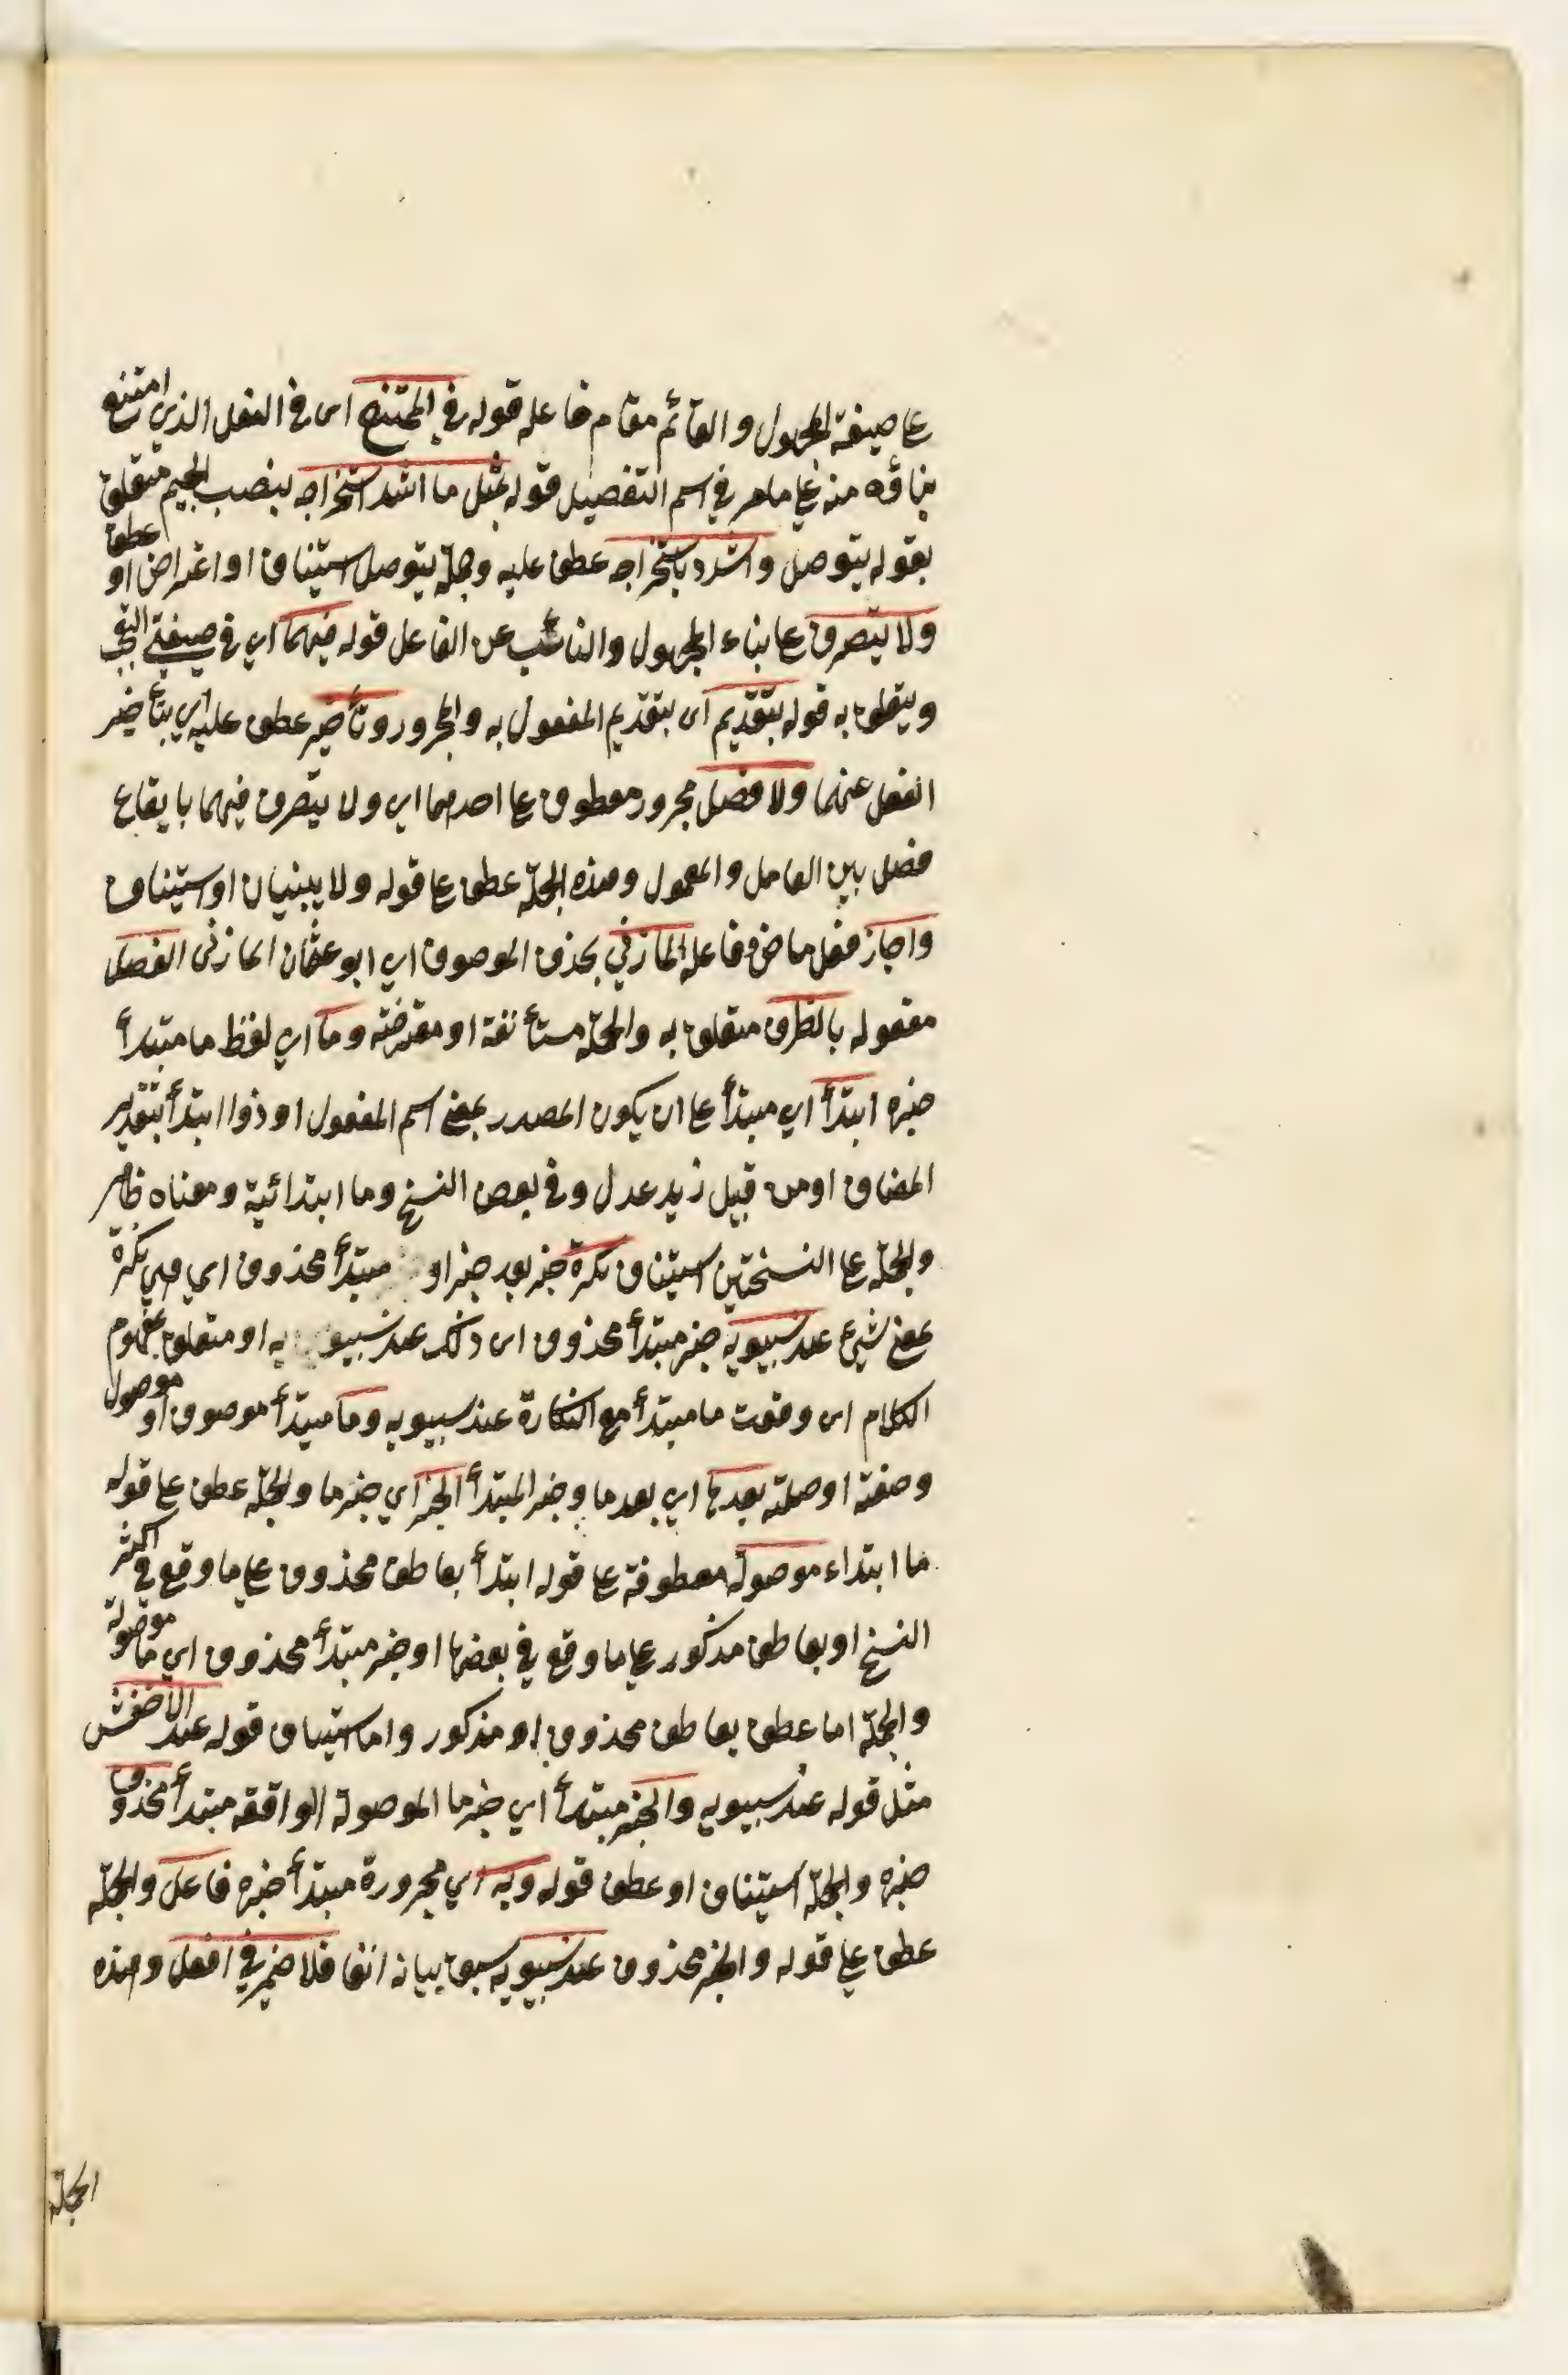 على صيغة المجهول والقائم مقام فاعله قوله في الممتنع اى فى الفعل الذي امتنع
بناؤه منه على ما مر في اسم التفضيل قوله بمثل ما اشد استخراجه بنصب الجيم متعلق
بقوله يتوصل واشدد باستخراجه عطف عليه وجملة يتوصل استيناف او اعتراض او عطف
ولا يتصرف على بناء المجهول والنائب عن الفاعل قوله فيهما اي في صيغتي التعجب
ويتعلق به قوله بتقديم اى بتقديم المفعول به والمجرور وتأخير عطف عليه اي بتأخير
الفعل عنهما ولا فصل مجرور معطوف على احدهما اي ولا يتصرف فيهما بايقاع
فصل بين العامل والمعمول وهذه الجملة عطف على قوله ولا يبنيان او استيناف
واجاز فعل ماض وفاعله المازني بحذف الموصوف اي ابو عثمان المازنى الفصل
مفعوله بالظرف متعلق به والجملة مستأنفة او معترضة وما اي لفظ ما مبتدأ
خبره ابتدأ اي مبتدأ على ان يكون المصدر بمعنى اسم المفعول او ذوا ابتدأ بتقدير
المضاف او من قبيل زيد عدل وفى بعض النسخ وما ابتدائية ومعناه ظاهر
والجملة على النسختين استيناف نكرة خبر بعد خبر او مبتدأ محذوف اي هي نكرة
بمعنى شيئ عند سيبويه خبر مبتدأ محذوف اى ذلك عند سيبويه او متعلق بمفهوم
الكلام اى وقعت ما مبتدأ مع النكارة عند سيبويه وما مبتدأ موصوف او موصول
وصفته او صلته بعدها اي بعد ما وخبر المبتدأ الخبر اي خبر ما والجملة عطف على قوله
ما ابتداء موصولة معطوفة على قوله ابتدأ بعاطف محذوف على ما وقع في اكثر
النسخ او بعاطف مذكور على ما وقع في بعضها او خبر مبتدأ محذوف اي ما موصولة
والجملة اما عطف بعاطف محذوف او مذكور واما استيناف قوله عند الأخفش
مثل قوله عند سيبويه والخبر مبتدأ اي خبر ما الموصولة الواقعة مبتدأ محذوف
خبره والجملة استيناف او عطف قوله وبه اي مجرورة مبتدأ خبره فاعل والجملة
عطف على قوله والخبر محذوف عند سيبويه سبق بيانه انفا فلا ضمير في افعل وهذه
الجملة